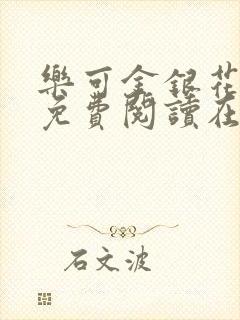 樂可金銀花
免費閱讀在
石文波